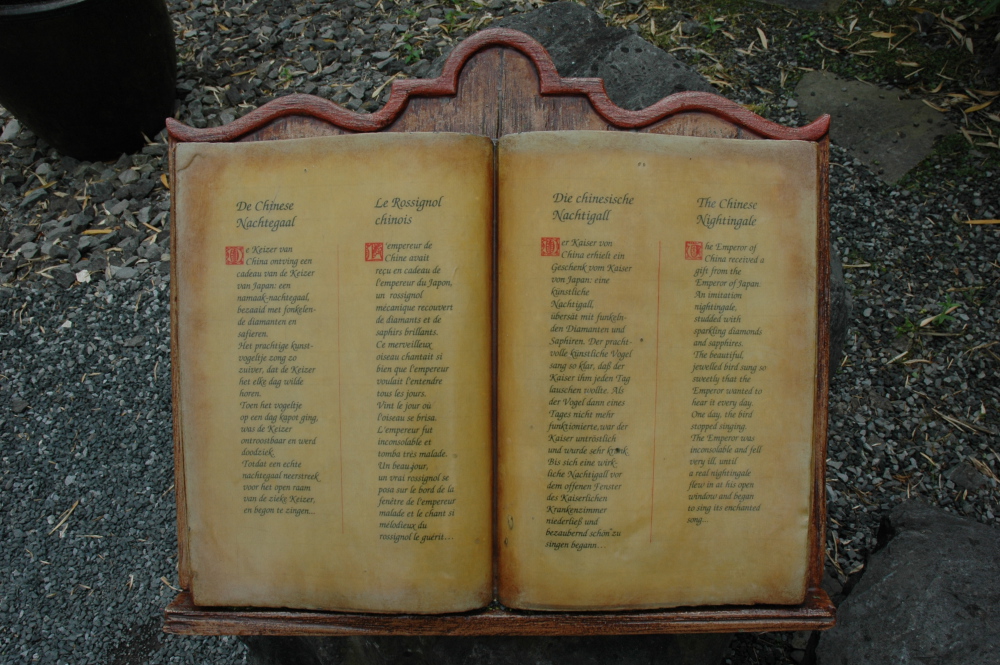 De Chinese
Nachtegaal
De Keizer van
China ontving een
cadeau van de Keizer
van Japan: een
namaak-nachtegaal,
bezaaid met fonkelen-
de diamanten en
safieren.
Het prachtige kunst-
vogeltje zong zo
zuiver, dat de Keizer
het elke dag wilde
horen.
Toen het vogeltje
op een dag kapot ging,
was de Keizer
ontroostbaar en werd
doodziek.
Totdat een echte
nachtegaal neerstreek
voor het open raam
van de zieke Keizer,
en begon te zingen...
Le Rossignol
chinois
L'empereur de
Chine avait
reçu en cadeau de
l'empereur du Japon,
un rossignol
mécanique recouvert
de diamants et de
saphirs brillants.
Ce merveilleux
oiseau chantait si
bien que l'empereur
voulait l'entendre
tous les jours.
Vint le jour où
l'oiseau se brisa.
L'empereur fut
inconsolable et
tomba très malade.
Un beau jour,
un vrai rossignol se
posa sur le bord de la
fenêtre de l'empereur
malade et le chant si
mélodieux du
rossignol le guérit...
Die chinesische
Nachtigall
Der Kaiser von
China erhielt ein
Geschenk vom Kaiser
von Japan: eine
künstliche
Nachtigall,
übersät mit funkeln-
den Diamanten und
Saphiren. Der pracht-
volle künstliche Vogel
sang so klar, daß der
Kaiser ihm jeden Tag
lauschen wollte. Als
der Vogel dann eines
Tages nicht mehr
funktionierte, war der
Kaiser untröstlich
und wurde sehr krank.
Bis sich eine wirk-
liche Nachtigall vor
dem offenen Fenster
des Kaiserlichen
Krankenzimmer
niederließ und
bezaubernd schön zu
singen begann...
The Chinese
Nightingale
The Emperor of
China received a
gift from the
Emperor of Japan:
An imitation
nightingale,
studded with
sparkling diamonds
and sapphires.
The beautiful,
jewelled bird sang so
sweetly that the
Emperor wanted to
hear it every day.
One day, the bird
stopped singing.
The Emperor was
inconsolable and fell
very ill, until
a real nightingale
flew in at his open
window and began
to sing its enchanted
song...